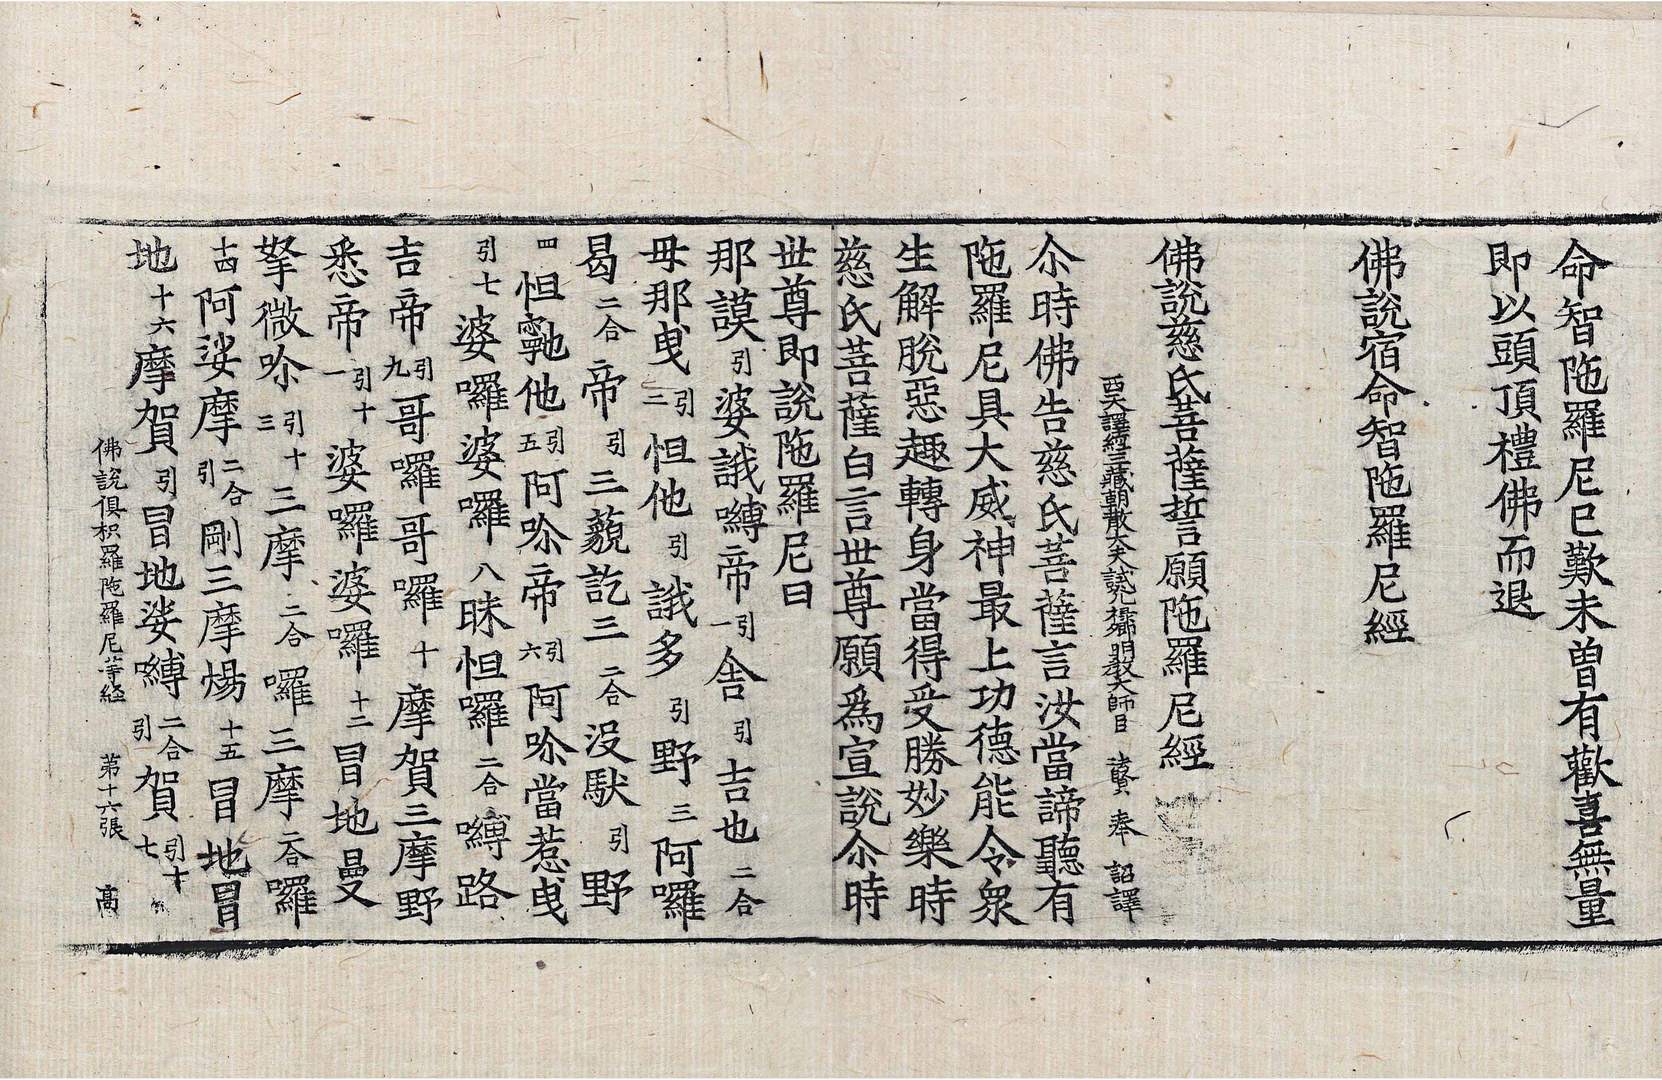 命智陁羅尼已歎未曽有歡喜無量
即以頭頂禮佛而退
佛說宿命智陁羅尼經
佛說慈氏菩薩誓願陁羅尼經
西天譯經三藏朝散大夫試光祿卿明教大師臣 法賢 奉 詔譯
尒時佛告慈氏菩薩言汝當諦聽有
陁羅尼具大威神最上功德能令衆
生解脫惡趣轉身當得受勝妙樂時
慈氏菩薩白言世尊願爲宣說尒時
世尊即說陁羅尼曰
那謨引婆誐嚩帝引一舍引吉也二合
母那曳引二怛他引誐多引野三阿囉
曷二合帝引三藐訖三二合沒馱引野
四怛𩕳他引五阿吤帝引六阿吤當惹曳
引七婆囉婆囉八昧怛囉二合嚩路
吉帝引九哥囉哥囉十摩賀三摩野
悉帝引十一婆囉婆囉十二冒地曼
拏微吤引十三三摩二合囉三摩二合囉
十四阿娑摩二合引剛三摩煬十五冒地冒
地十六摩賀引冒地娑嚩二合引賀引十七
佛說俱枳羅陁羅尼等経 第十六張 髙